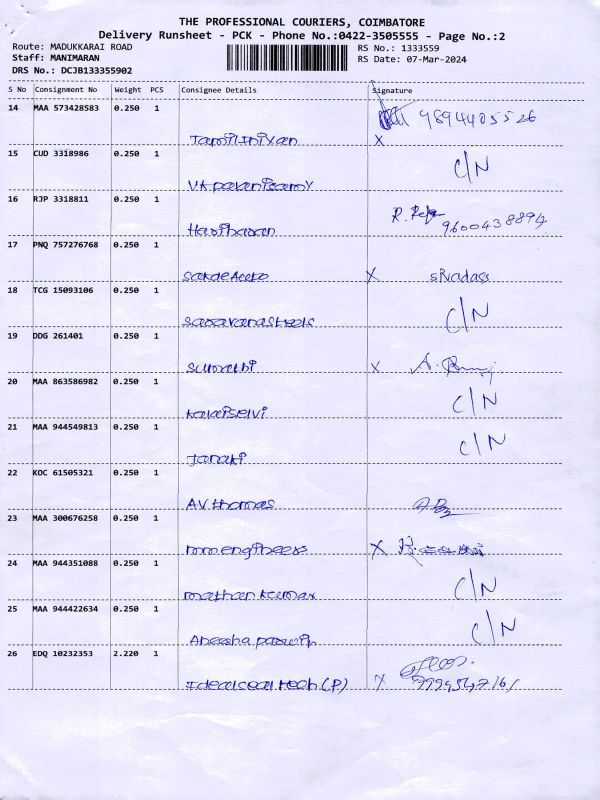 THE PROFESSIONAL COURIERS, COIMBATORE
Delivery Runsheet - PCK - Phone No.:0422-3505555 - Page No.:2
Route: MADUKKARAI ROAD RS No.: 1333559
Staff: MANIMARAN RS Date: 07-Mar-2024
DRS No.: DCJB133355902
S No Consignment No Weight PCS Consignee Details Signature
14 MAA 573428583 0.250 1 9894405526
Tamiliniyan X
15 CUD 3318986 0.250 1 C/N
VKpalanisamy
16 RJP 3318811 0.250 1 9600438894
Hariharan
17 PNQ 757276768 0.250 1
X
18 TCG 15093106 0.250 1 C/N
saravanasteels
19 DDG 261401 0.250 1
sumathi X
20 MAA 863586982 0.250 1 C/N
kalaiselvi
21 MAA 944549813 0.250 1 C/N
Janaki
22 KOC 61505321 0.250 1
AVthomas
23 MAA 300676258 0.250 1
mmengineers X
24 MAA 944351088 0.250 1 C/N
mathan kumar
25 MAA 944422634 0.250 1 C/N
Aneesha
26 EDQ 10232353 2.220 1
Idealsealtech(P) X